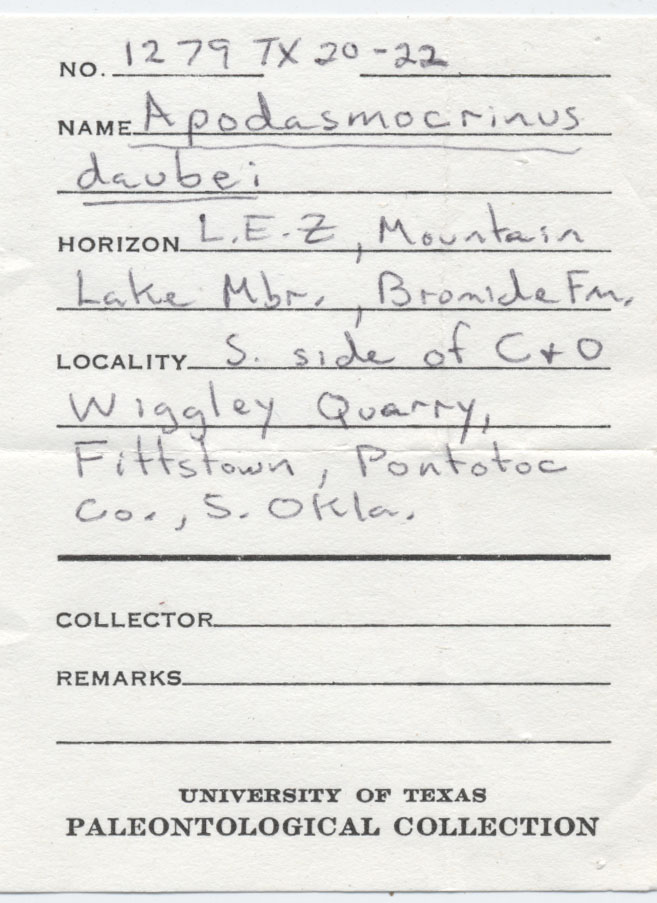 NO. 1279 TX 20-22
NAME Apodasmocrinus
daubei
HORIZON L.E.Z, Mountain
Lake Mbr., Bromide Fm.
LOCALITY S. side of C+O
Wiggley Quarry,
Fittstown, Pontotoc
Co., S. Okla.
COLLECTOR
REMARKS
UNIVERSITY OF TEXAS
PALEONTOLOGICAL COLLECTION